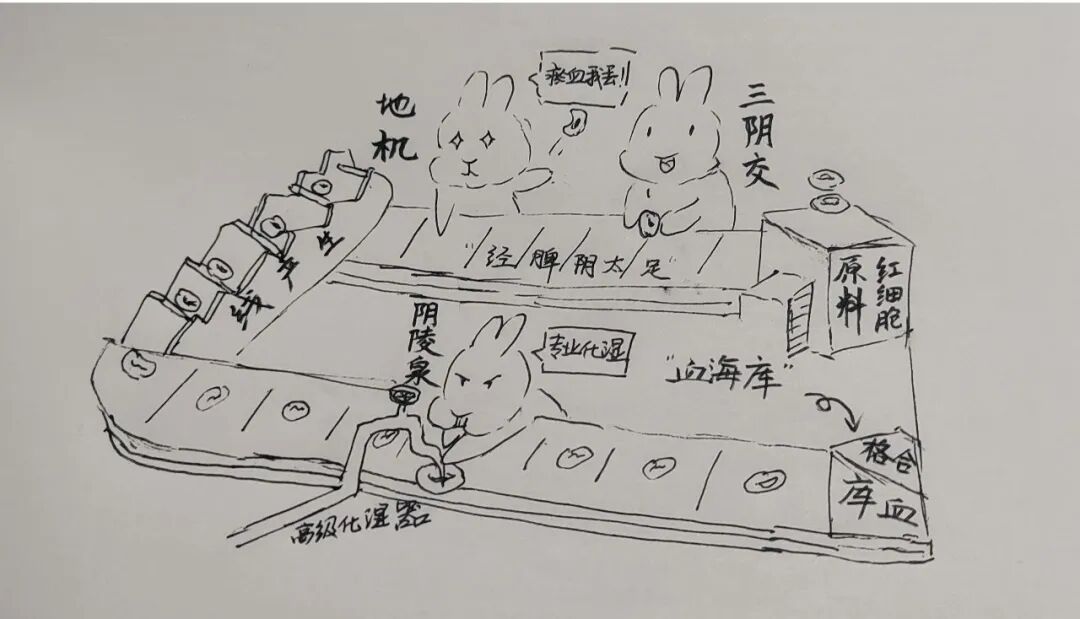 瘀血我丢!!
地机
三阴交
"足太阴脾经"
红细胞
原料
阴陵泉
专业化湿
"血海库"
合格
血库
高级化湿器